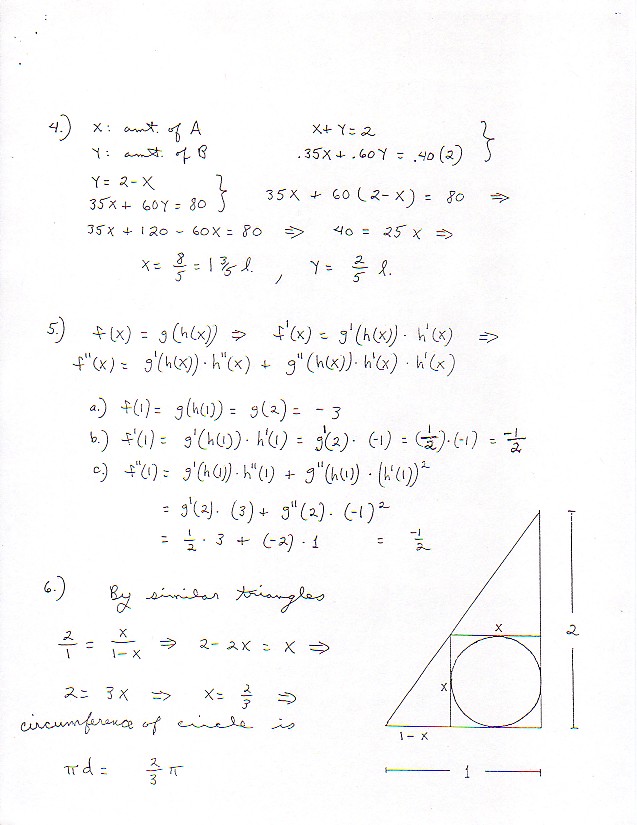 4.) X: amt. of A   X+Y=2
Y: amt. of B   .35X + .60Y = .40(2) }
Y = 2-X
35X + 60Y = 80 }   35X + 60(2-X) = 80 ⇒
35X + 120 - 60X = 80 ⇒ 40 = 25X ⇒
X = 8/5 = 1 3/5 l. , Y = 2/5 l.
5.) f(x) = g(h(x)) ⇒ f'(x) = g'(h(x)) · h'(x) ⇒
f''(x) = g'(h(x)) · h''(x) + g''(h(x)) · h'(x) · h'(x)
a.) f(1) = g(h(1)) = g(2) = -3
b.) f'(1) = g'(h(1)) · h'(1) = g'(2) · (-1) = (1/2) · (-1) = -1/2
c.) f''(1) = g'(h(1)) · h''(1) + g''(h(1)) · (h'(1))²
= g'(2) · (3) + g''(2) · (-1)²
= 1/2 · 3 + (-2) · 1 = -1/2
6.) By similar triangles
2/1 = x/1-x ⇒ 2-2x = x ⇒
2 = 3x ⇒ x = 2/3 ⇒
circumference of circle is
πd = 2/3 π
x
2
x
1-x
1